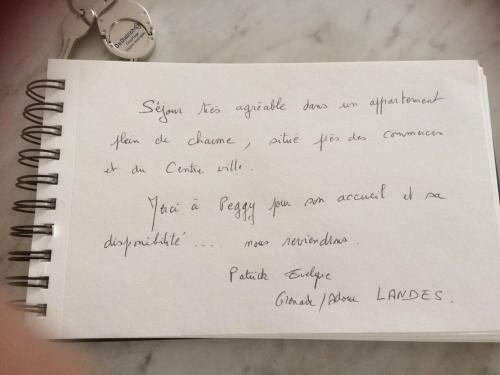 Séjour très agréable dans un appartement
plein de charme, situé près des commerces
et du Centre ville.
Merci à Peggy pour son accueil et sa
disponibilité .... nous reviendrons.
Patrick Evelyne
Grenade/Adour LANDES.